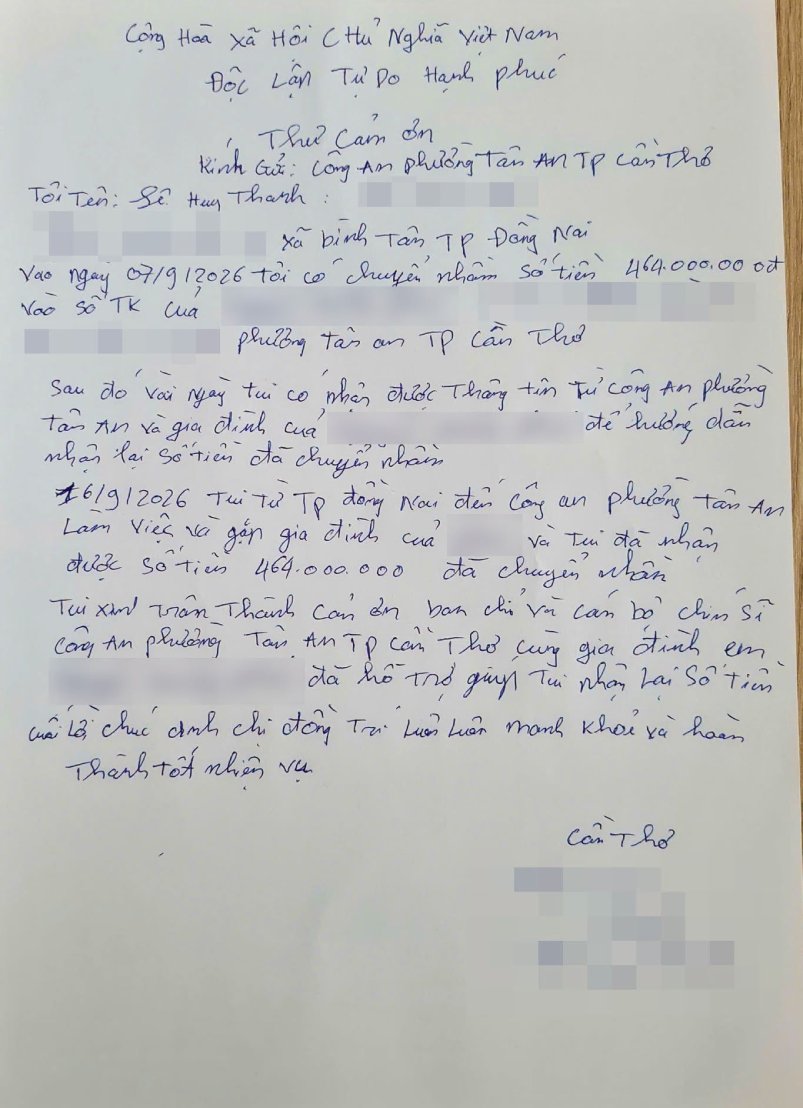 Cộng Hoà Xã Hội Chủ Nghĩa Việt Nam
Độc Lập Tự Do Hạnh Phúc
Thư Cảm Ơn
Kính Gửi: Công An phường Tân An TP Cần Thơ
Tôi Tên: Lê Huy Thanh :
Xã bình Tân TP Đồng Nai
Vào ngày 07/9/2026 tôi có chuyển nhầm Số tiền 464.000.00 0đ
Vào Số TK của
phường tân an TP Cần Thơ
Sau đó vài ngày tui có nhận được Thông tin Từ Công An phường
Tân An và gia đình của để hướng dẫn
nhận lại Số tiền đã chuyển nhầm
16/9/2026 Tui Từ TP đồng Nai đến Công an phường Tân An
Làm việc và gặp gia đình của và Tui đã nhận
được Số tiền 464.000.000 đã chuyển nhầm
Tui xin trân Thành cản ơn ban chỉ và cán bộ chin Sĩ
Công An phường Tân An TP Cần Thơ cùng gia đình em
đã hỗ Trợ giúp Tui nhận Lại Số Tiền
cuối Lời chúc anh chị đồng Trí Luôn Luôn mạnh khoẻ và hoàn
Thành tốt nhiện vụ
Cần Thơ